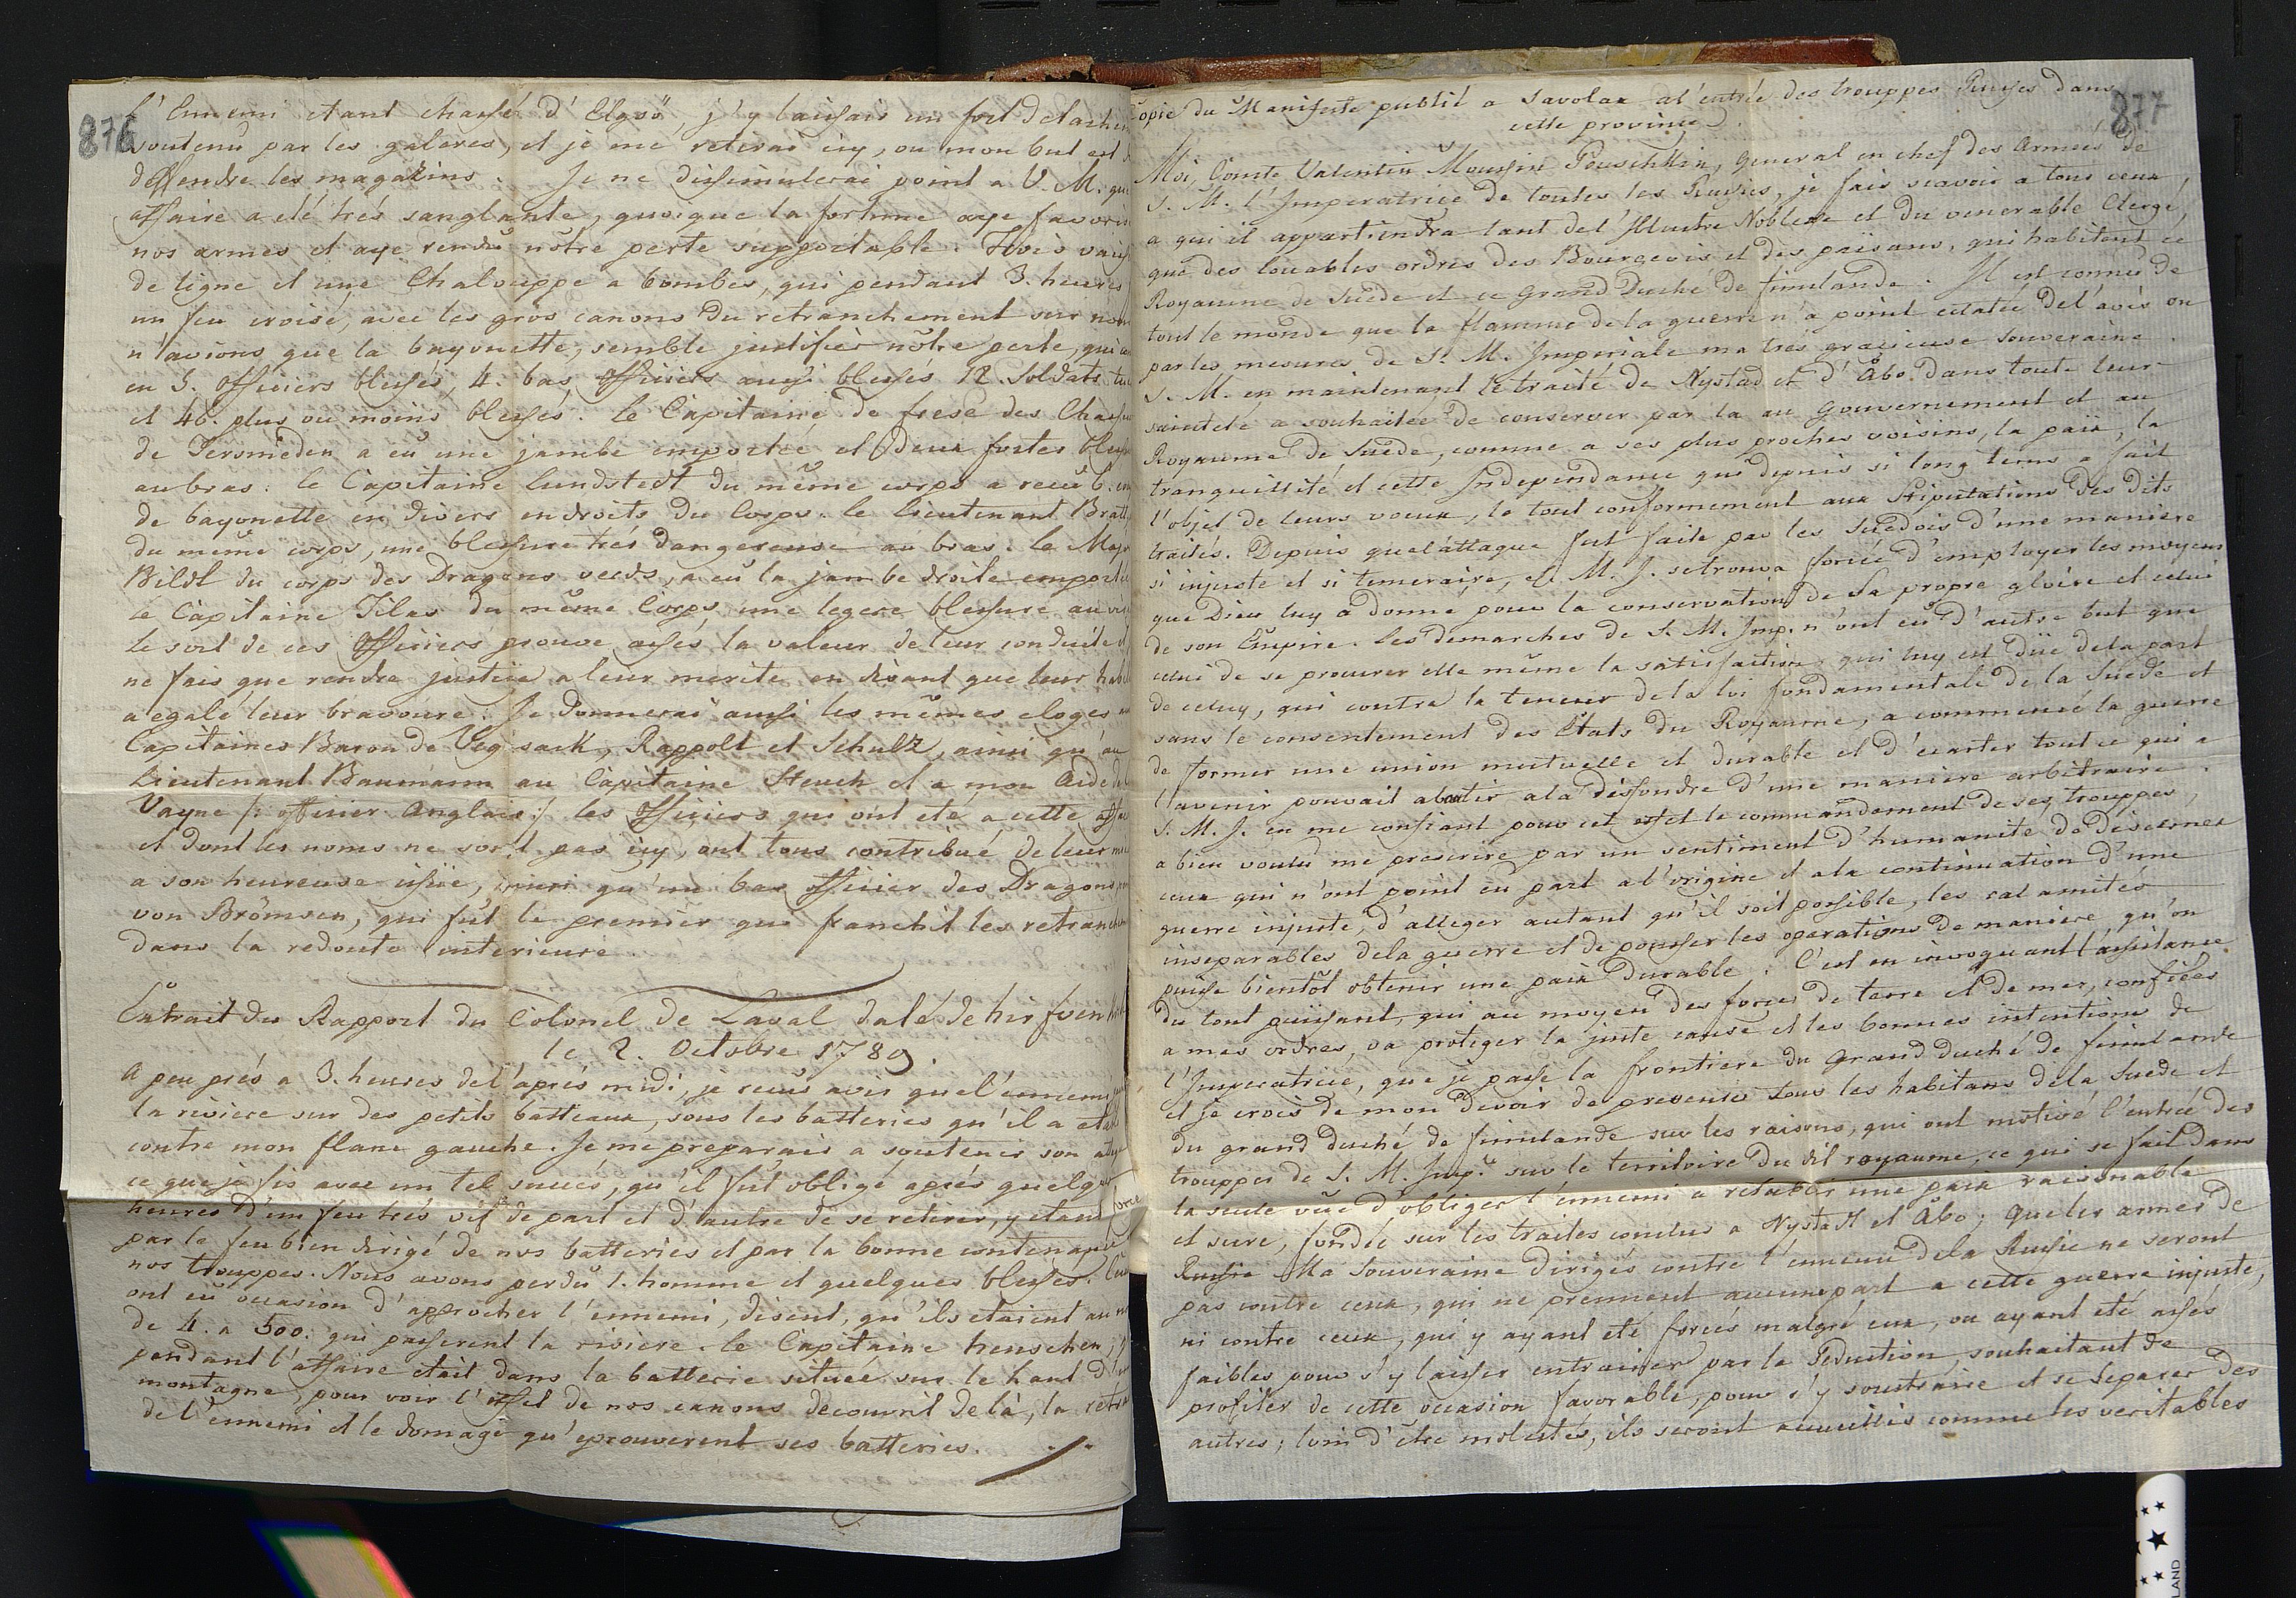 876
L'Ennemi etant chassé d'Elgsö, j'y laissais un fort
soutenu par les galeres, et je me retirai icy, ou mon but est
deffendre les magazins. Je ne dissimulerai point a V. M. que
affaire a eté trés sanglante, quoique la fortune aye favorisé
nos armes et aye rendu nôtre perte supportable. Trois
de ligne et une Chalouppe a bombes, qui pendant 3. heures
un feu croisé, avec les gros canons du retranchement sur nous
n'avions que la bayonette, semble justifier nôtre perte, qui
en 5. Officiers blessés, 4. bas Officiers aussi blessés 12. Soldats
et 46. plus ou moins blessés. le Capitaine de frese des
de Jersmeden a eû une jambe emportée et deux fortes
au bras. le Capitaine Lundstedt du même corps a reçû 6.
de bayonette en divers endroits du Corps. le Lieutenant
du même corps, une blessure trés dangereuse au bras. le Major
Bildt du corps des Dragons verds, a eû la jambe droite emportée
le Capitaine Tilas du même Corps, une legere blessure au
le sort de ces Officiers prouve assés la valeur de leur conduite
ne fais que rendre justice a leur merite en disant que leur
a egalé leur bravoure. Je donnerai aussi les mêmes eloges
Capitaines Baron de Vegesack, Rappolt et Schulz, ainsi qu'au
Lieutenant Baumann au Capitaine Steuch et a mon Aide de
Vayne /: officier Anglais :/ les Officiers qui ont eté a cette
et dont les noms ne sont pas icy, ont tous contribué de leur
a son heureuse issüe, ainsi qu'un bas officier des Dragons,
von Brömsen, qui fut le premier qui franchit les
dans la redoute interieure.
Extrait du Rapport du Colonel de Laval daté de
le 2. Octobre 1789.
A peu prés a 3. heures de l'aprés midi, je reçus avis que l'ennemi
la riviere sur des petits batteaux, sous les batteries qu'il a
contre mon flanc gauche. Je me preparais a soutenir son
ce que je fis avec un tel succés, qu'il fut obligé aprés quelques
heures d'un feu trés vif de part et d'autre de se retirer, y etant forcé
par le feu bien dirigé de nos batteries et par la bonne contenance
nos trouppes. Nous avons perdû 1. homme et quelques blessés.
ont eû occasion d'approcher l'ennemi, disent, qu'ils etaient au
de 4. a 500. qui passerent la riviere. le Capitaine heuschen,
pendant l'affaire etait dans la batterie située sur le haut
montagne, pour voir l'effet de nos canons decouvrit de là, la
de l'ennemi et le domage qu'eprouverent ses batteries.
877
Copie du Manifeste publié a Savolax a l'entrée des trouppes Russes dans
cette province.
Moi, Comte Valentin Moussin Pouschkin, General en chef des Armées de
S. M. l'Imperatrice de toutes les Russies, je fais sçavoir a tous ceux,
a qui il appartiendra tant de l'Illustre Noblesse et du venerable Clergé,
que des louables ordres des Bourgeois et des païsans, qui habitent ce
Royaume de Suede et ce Grand Duché de finnlande. Il est connu de
tout le monde que la flamme de la guerre n'a point eclatée de l'avis ou
par les mesures de S. M. Imperiale ma trés gracieuse Souveraine.
S. M. en maintenant le traité de Nystad et d'Åbo dans toute leur
sainteté a souhaitée de conserver par la au Gouvernement et au
Royaume de Suede, comme a ses plus proches voisins, la paix, la
tranquillité et cette Independance qui depuis si long tems a fait
l'objet de leurs voeux, le tout conformement aux Stipulations des dits
traités. Depuis que l'attaque fut faite par les Suedois d'une maniere
si injuste et si temeraire, S. M. I. se trouva forcée d'employer les moyens
que Dieu luy a donné pour la conservation de Sa propre gloire et celui
de son Empire. les demarches de S. M. Imp. n'ont eû d'autre but que
celui de se procurer elle même la satisfaction, qui luy est düe de la part
de celuy, qui contre la teneur de la loi fondamentale de la Suede et
sans le consentement des Etats du Royaume, a commencé la guerre
de former une union mutuelle et durable et d'ecarter tout ce qui a
l'avenir pouvait aboutir a la dissoudre d'une maniere arbitraire.
S. M. I. en me confiant pour cet effet le commandement de ses trouppes,
a bien voulu me prescrire par un sentiment d'humanité de discerner
ceux qui n'ont point eu part a l'origine et a la continuation d'une
guerre injuste, d'alleger autant qu'il soit possible, les calamités
inseparables de la guerre et de pousser les operations de maniere qu'on
puisse bientôt obtenir une paix durable. C'est en invoquant l'assistance
du tout puissant, qui au moyen des forces de terre et de mer, confiées
a mes ordres, va proteger la juste cause et les bonnes intentions de
l'Imperatrice, que je passe la frontiere du Grand duché de finnlande
et je crois de mon devoir de prevenir tous les habitans de la Suede et
du grand duché de finnlande sur les raisons, qui ont motivé l'entrée des
trouppes de S. M. Imp.e sur le territoire du dit royaume, ce qui se fait dans
la seule vüe d'obliger l'ennemi a retablir une paix raisonable
et sure, fondée sur les traités conclus a Nystadt et Åbo; que les armes de
Russie Ma Souveraine dirigés contre l'ennemi de la Russie ne seront
pas contre ceux, qui ne prennent aucune part a cette guerre injuste,
ni contre ceux, qui y ayant eté forcés malgré eux, ou ayant eté assés
faibles pour s'y laisser entrainer par la Seduction, souhaitant de
profiter de cette occasion favorable, pour s'y soustraire et se separer des
autres; loin d'être molestés, ils seront accueillis comme les veritables
LAND